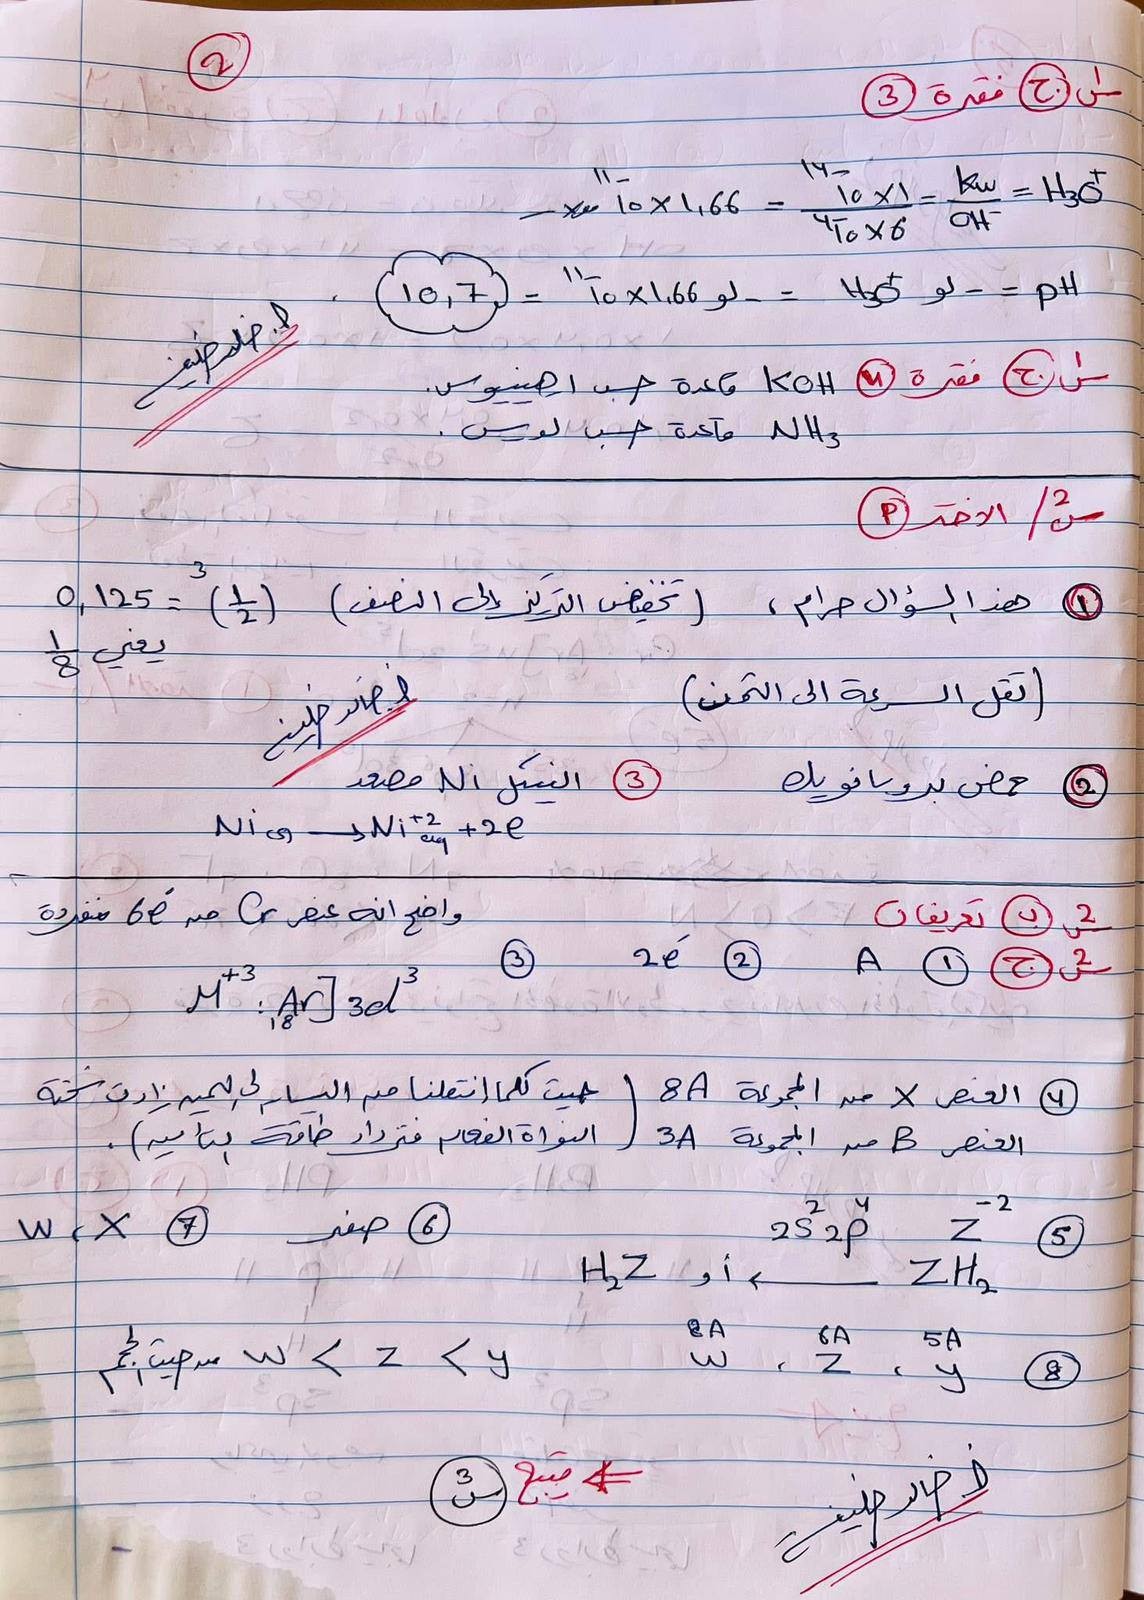 2
س1 ج فقرة 3
H₃O⁺ = Kw / OH⁻ = 1×10⁻¹⁴ / 6×10⁻⁴ = 1,66×10⁻¹¹
pH = - لو H₃O⁺ = - لو 1,66×10⁻¹¹ = 10,7
أ. خالد خليفي
س1 ج فقرة 4 KOH قاعدة حسب ارهينيوس.
NH₃ قاعدة حسب لويس.
س2 / الاختر P
1 هذا السؤال حرام، (تخفيض التركيز إلى النصف) (1/2)³ = 0,125
يعني 1/8
(تقل السرعة الى الثمن)
أ. خالد خليفي
2 حمض بروبانويك 3 النيكل Ni مصعد
Ni(s) → Ni⁺²aq + 2e
س2 ب تعريفات واضح انه عنصر Cr منه 6e منفردة
س2 ج 1 A 2 2e 3
M⁺³ : ₁₈Ar] 3d³
4 العنصر X من المجموعة 8A (حيث كلما انتقلنا من اليسار لليمين زادت شحنة
العنصر B من المجموعة 3A النواة الفعالة فتزداد طاقة التأين).
5 Z⁻² 2s² 2p⁴ 6 صفر 7 W ، X
ZH₂ ← أو H₂Z
8 5A 6A 8A
y ، Z ، W W < Z < y من حيث الحجم
يتبع س3
أ. خالد خليفي